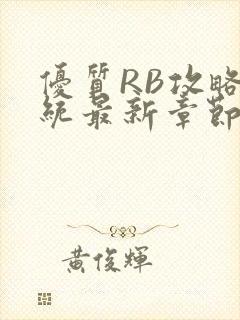 優質RB攻略
統最新章節
黃俊輝